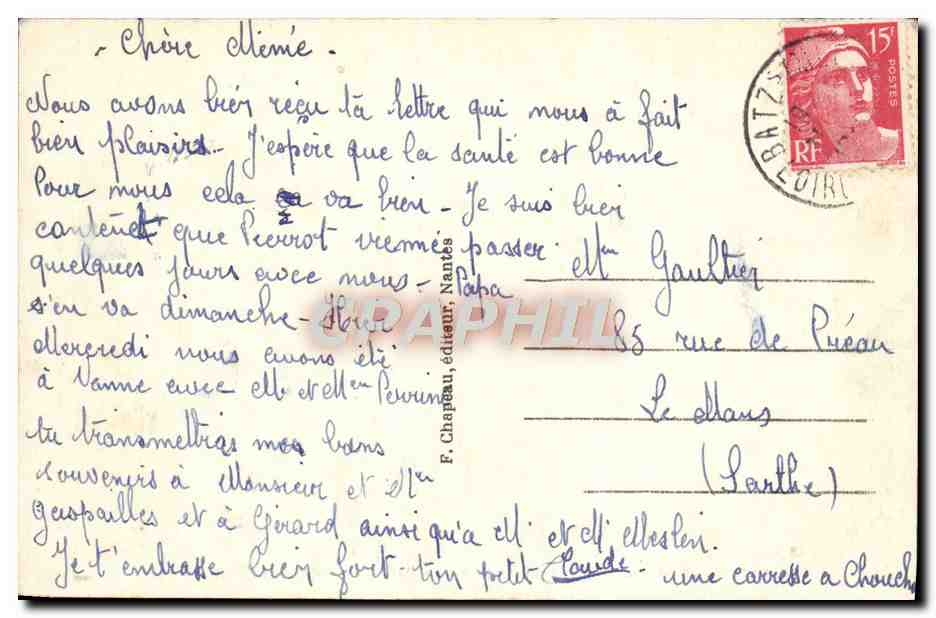 - Chère Mémé -
Nous avons bien reçu ta lettre qui nous à fait
bien plaisir. J'espère que la santé est bonne
Pour nous cela va bien - Je suis bien
content que Pierrot vienne passer
quelques jours avec nous - Papa
s'en va dimanche - Hier
Mercredi nous avons été
à Vanne avec M et Mme Perrin
tu transmettras mes bons
souvenirs à Monsieur et Mme
Gaspailles et à Gérard ainsi qu'a M et M Meslin.
Je t'embrasse bien fort - ton petit Claude - une carresse a Chouch
Mme Gaultier
85 rue de Préau
Le Mans
(Sarthe)
F. Chapeau, éditeur, Nantes
15F
POSTES
RF
BATZ S
LOIRE
CPAPHIL